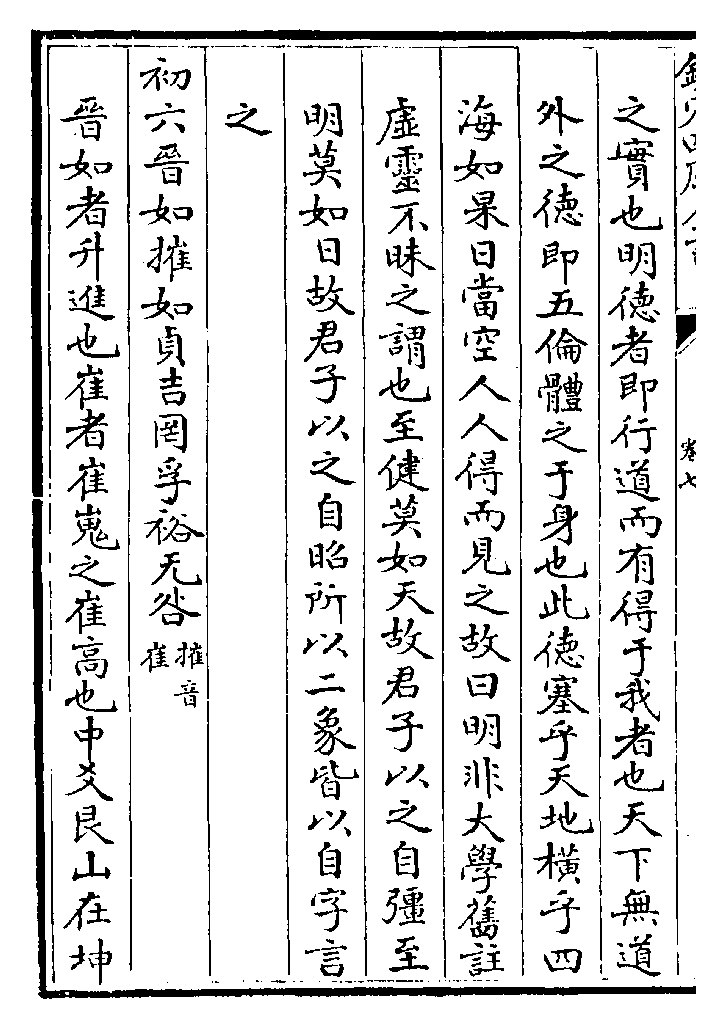 欽定四庫全書
卷七
之實也明德者即行道而有得于我者也天下無道
外之德即五倫體之于身也此德塞乎天地橫乎四
海如杲日當空人人得而見之故曰明非大學舊註
虛靈不昧之謂也至健莫如天故君子以之自彊至
明莫如日故君子以之自昭所以二象皆以自字言
之
初六晉如摧如貞吉罔孚裕无咎摧音崔
晉如者升進也崔者崔嵬之崔高也中爻艮山在坤